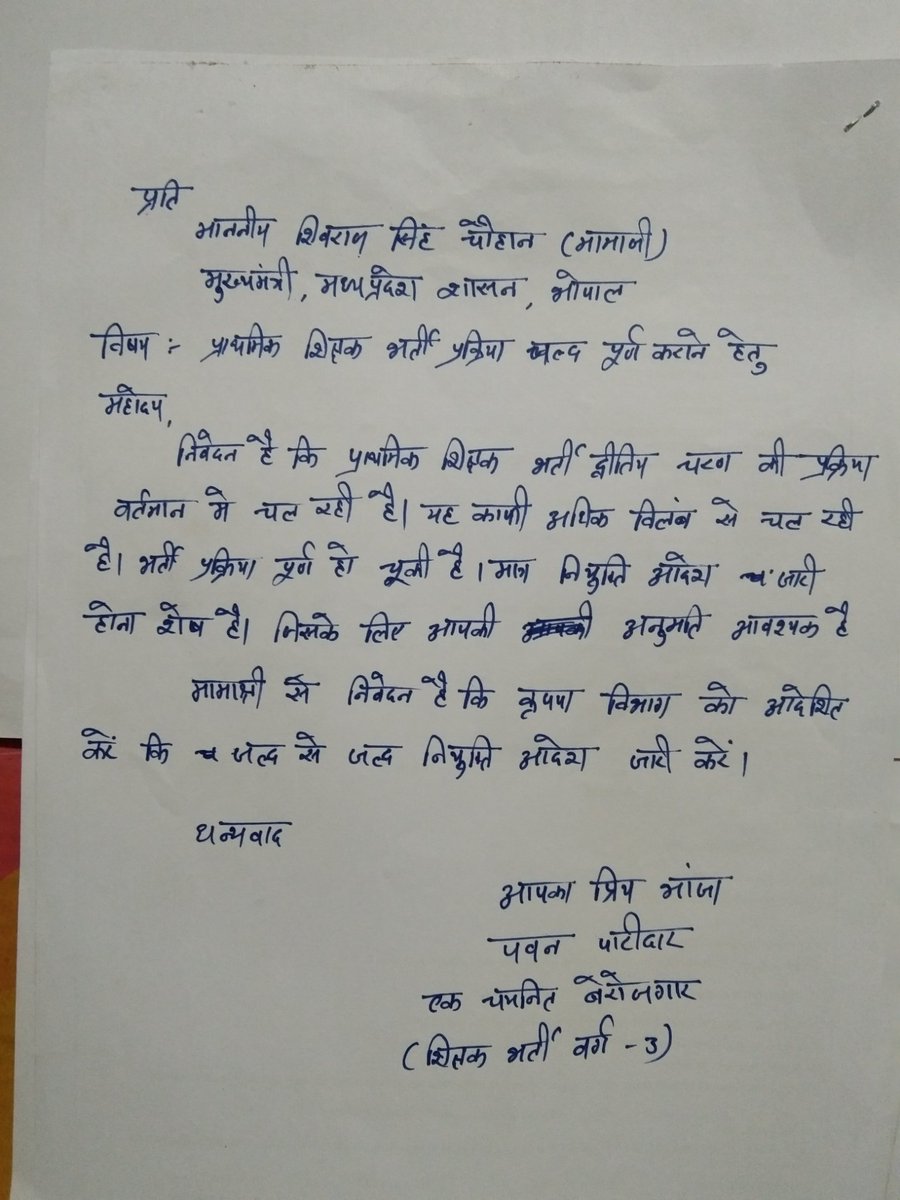 प्रति
माननीय शिवराज सिंह चौहान (मामाजी)
मुख्यमंत्री, मध्यप्रदेश शासन, भोपाल
विषय :- प्राथमिक शिक्षक भर्ती प्रक्रिया जल्द पूर्ण कराने हेतु
महोदय,
निवेदन है कि प्राथमिक शिक्षक भर्ती द्वीतिय चरण की प्रक्रिया
वर्तमान मे चल रही है। यह काफी अधिक विलंब से चल रही
है। भर्ती प्रक्रिया पूर्ण हो चूकी है। मात्र नियुक्ति आदेश जारी
होना शेष है। जिसके लिए आपकी अनुमति आवश्यक है
मामाश्री से निवेदन है कि कृपया विभाग को आदेशित
करें कि जल्द से जल्द नियुक्ति आदेश जारी करें।
धन्यवाद
आपका प्रिय भांजा
पवन पाटीदार
एक चयनित बेरोजगार
(शिक्षक भर्ती वर्ग - 3)